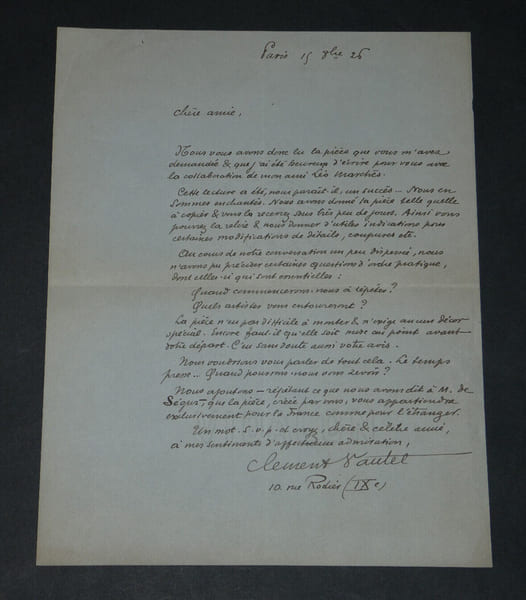 Paris 15 8bre 26
Chère amie,
Nous vous avons donc lu la pièce que vous m'avez
demandée & que j'ai été heureux d'écrire pour vous avec
la collaboration de mon ami Léo Marchès.
Cette lecture a été, nous paraît-il, un succès... Nous en
sommes enchantés. Nous avons donné la pièce telle quelle
à copier & vous la recevrez sous très peu de jours. Ainsi vous
pourrez la relire & nous donner d'utiles indications pour
certaines modifications de détails, coupures etc.
Au cours de notre conversation un peu dispersée, nous
n'avons pu préciser certaines questions d'ordre pratique,
dont celles-ci qui sont essentielles :
Quand commencerons-nous à répéter ?
Quels artistes vous entoureront ?
La pièce n'est pas difficile à monter & n'exige aucun décor
spécial. Encore faut-il qu'elle soit mise au point avant
votre départ. C'est sans doute aussi votre avis.
Nous voudrions vous parler de tout cela. Le temps
presse... Quand pourrons-nous vous revoir ?
Nous ajoutons – répétant ce que nous avons dit à M. de
Ségur – que la pièce, créée par vous, vous appartiendra
exclusivement pour la France comme pour l'étranger.
Un mot s. v. p. et croyez, chère & célèbre amie,
à mes sentiments d'affectueuse admiration,
Clément Vautel
10. rue Rodier (IXe)